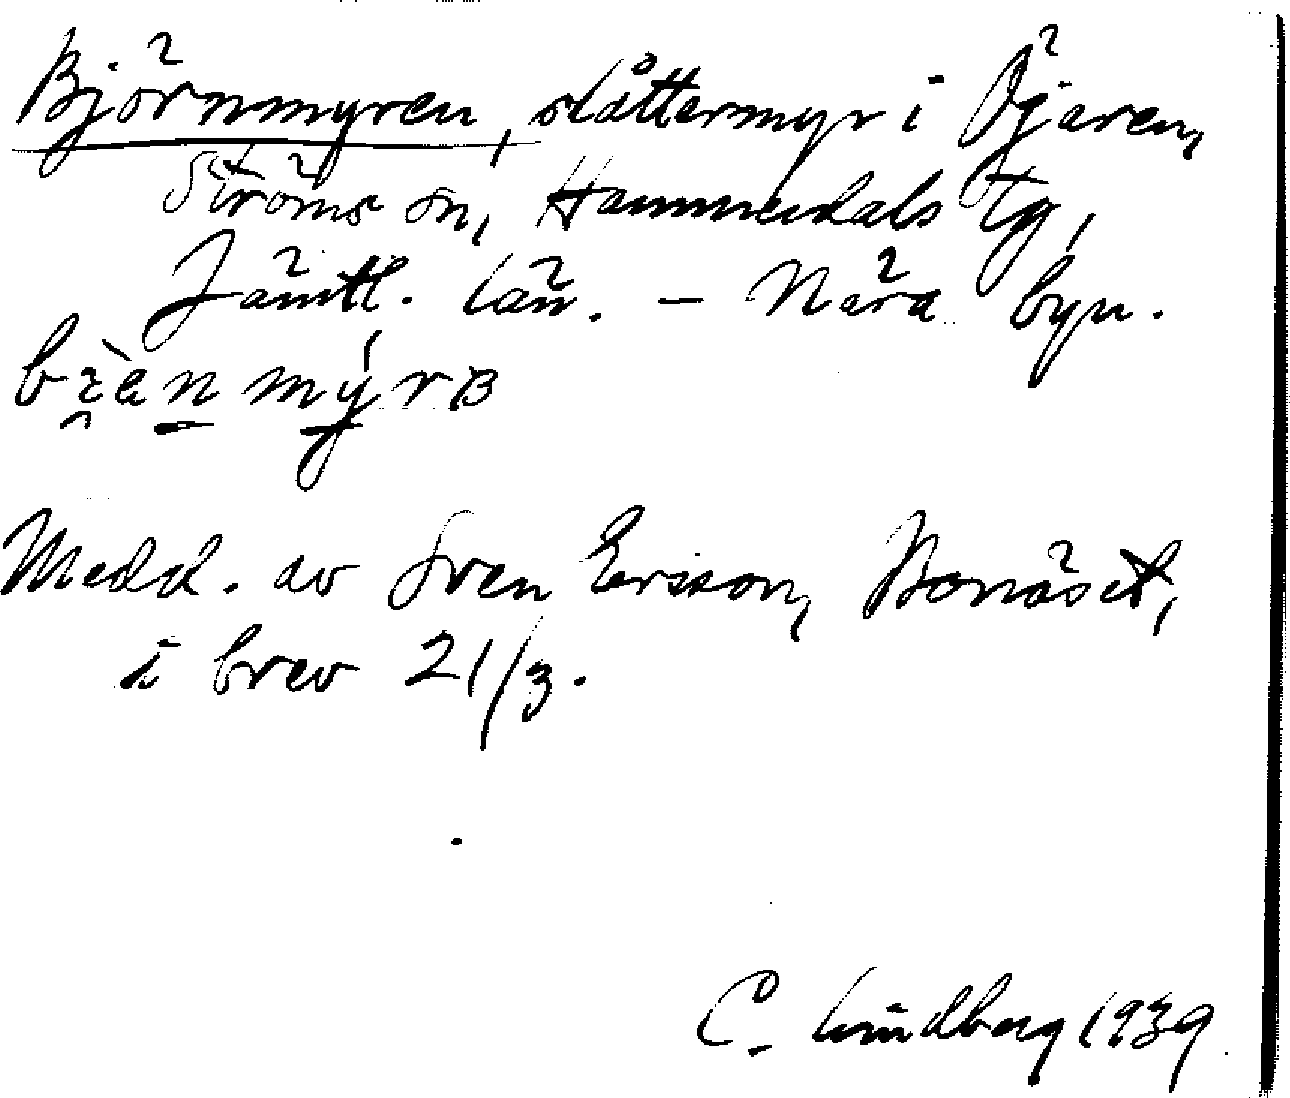 Björnmyren, slåttermyr i Öjaren,
Ströms sn, Hammerdals tg,
Jämtl. län. – Nära byn.
Medd. av Sven Ersson, Bonäset,
i brev 21/3.
C. Lindberg 1939